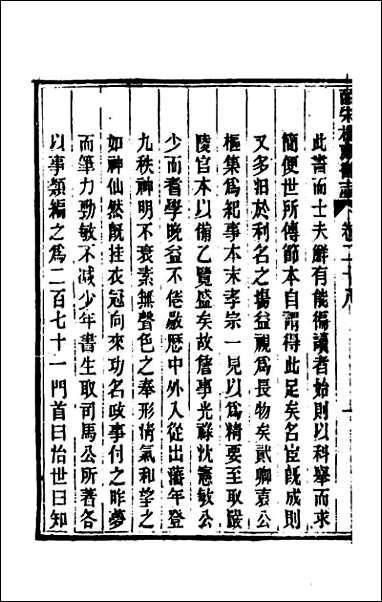 皕宋樓藏書志 卷二十
此書而士夫鮮有能徧讀者始則以科舉而求
簡便世所傳節本自謂得此足矣名宦旣成則
又多汨於利名之場益視爲長物矣貳卿袁公
樞集爲紀事本末孝宗一見以爲精要至取嚴
陵官本以備乙覽盛矣故詹事光祿沈憲敏公
少而耆學晚益不倦敭歷中外入從出藩年登
九秩神明不衰素無聲色之奉形情氣和望之
如神仙然旣挂衣冠向來功名歧事付之昨夢
而筆力勁敏不减少年書生取司馬公所著各
以事類編之爲二百七十一門首曰怡世曰知